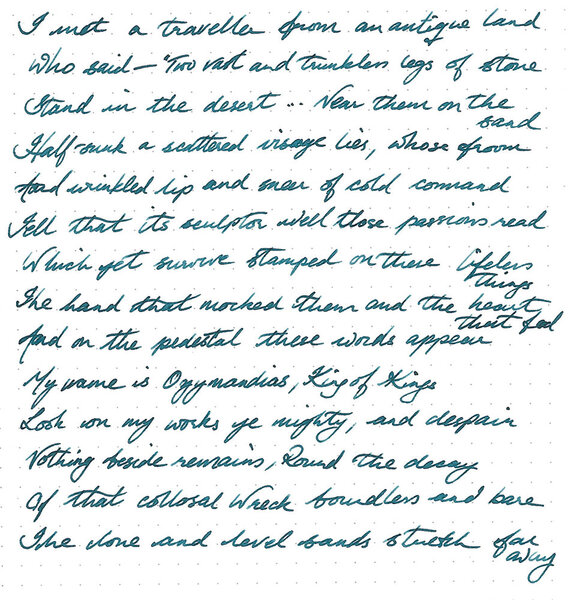 I met a traveller from an antique land
Who said — "Two vast and trunkless legs of stone
Stand in the desert ... Near them on the
sand
Half sunk a scattered visage lies, whose frown
And wrinkled lip and sneer of cold command
Tell that its sculptor well those passions read
Which yet survive stamped on these lifeless
things
The hand that mocked them and the heart
that fed
And on the pedestal these words appear
My name is Ozymandias, King of Kings
Look on my works ye mighty, and despair
Nothing beside remains, Round the decay
Of that collosal Wreck boundless and bare
The lone and level sands stretch far
away